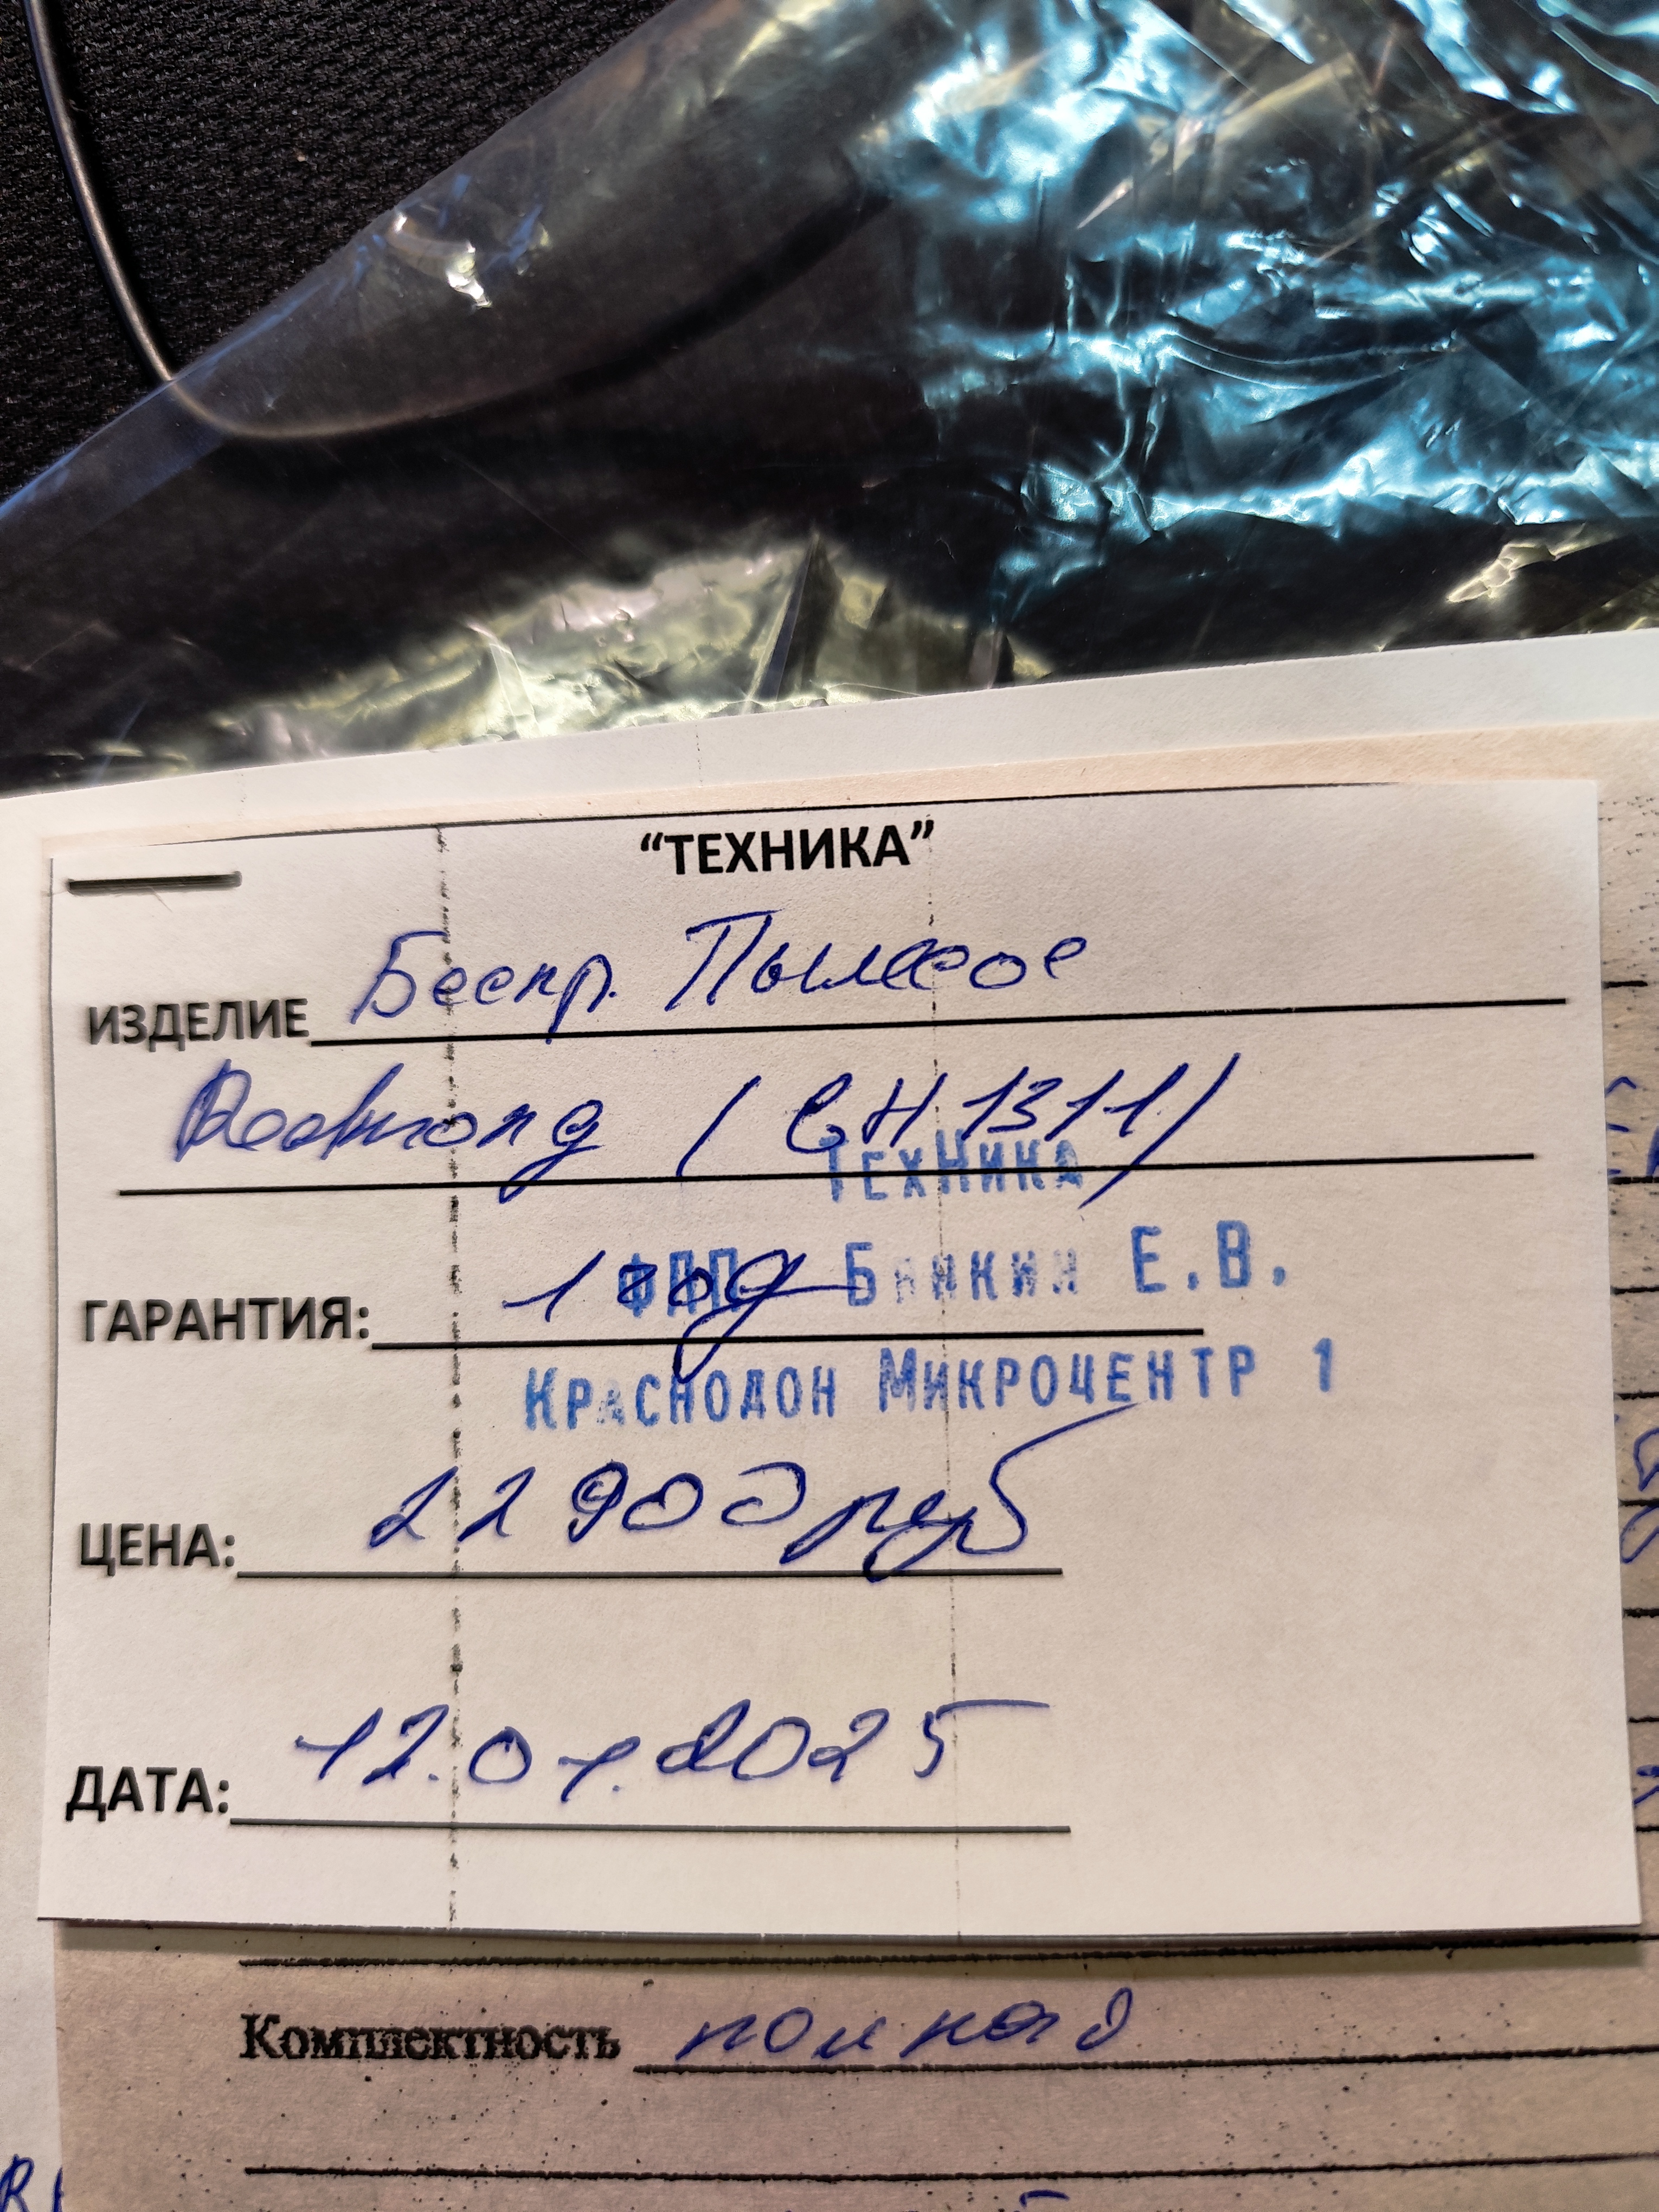 “ТЕХНИКА”
ИЗДЕЛИЕ Беспр. Пылесос
Redmond (CH1311)
ТЕХНИКА
ГАРАНТИЯ: 1 год
ФЛП Е.В.
КРАСНОДОН МИКРОЦЕНТР 1
ЦЕНА: 22 900 руб
ДАТА: 12.01.2025
Комплектность полная